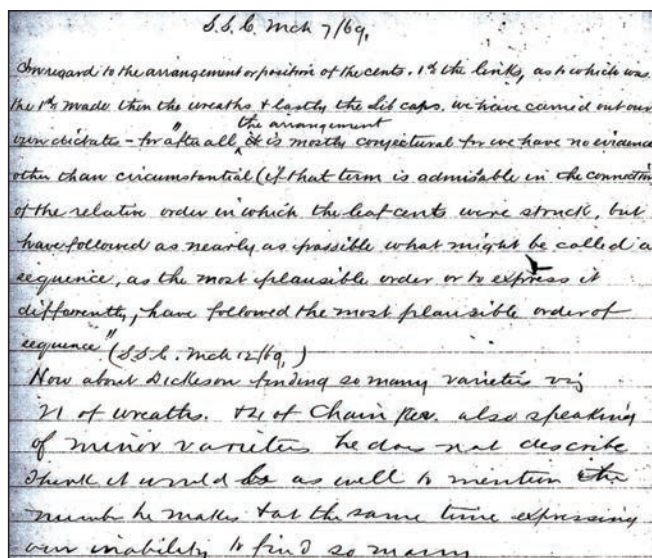 S.S.C. Mch 7/69,
In regard to the arrangement or position of the cents. 1st the links, as to which was
the 1st made then the wreaths & lastly the Lib caps. we have carried out our
the arrangement
own dictates - for "after all, it is mostly conjectural for we have no evidence
other than circumstantial (if that term is admissable in the connection
of the relative order in which the leaf cents were struck, but
have followed as nearly as possible what might be called a
sequence, as the most plausible order or to express it
differently, have followed the most plausible order of
sequence" (S.S.C. Mch 12/69,)
Now about Dickeson finding so many varieties viz
21 of wreaths. & 4 of Chain rev. also speaking
of minor varieties he does not describe
I think it would be as well to mention the
number he makes & at the same time expressing
our inability to find so many